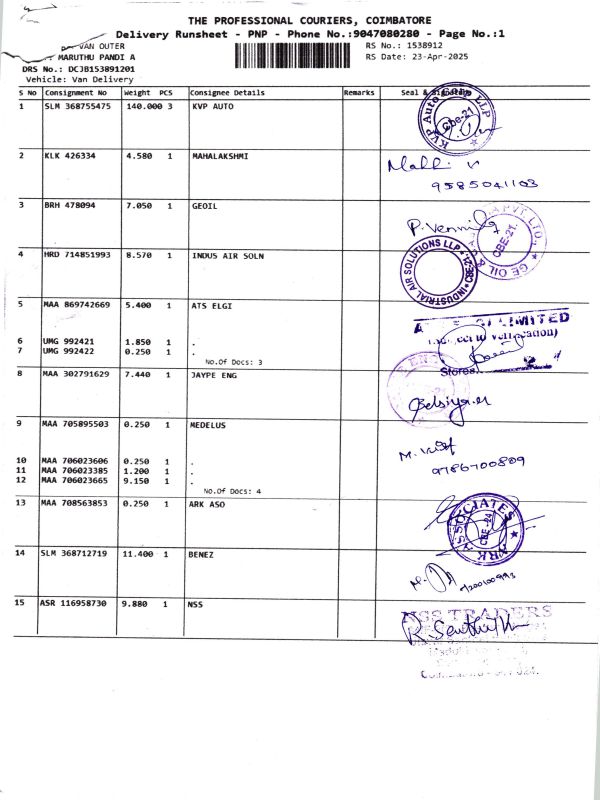 THE PROFESSIONAL COURIERS, COIMBATORE
Delivery Runsheet - PNP - Phone No.:9047080280 - Page No.:1
VAN OUTER
RS No.: 1538912
MARUTHU PANDI A
RS Date: 23-Apr-2025
DRS No.: DCJB153891201
Vehicle: Van Delivery
S No Consignment No Weight PCS Consignee Details Remarks Seal &
1 SLM 368755475 140.000 3 KVP AUTO
KVP Auto Corp LLP CBE-21
2 KLK 426334 4.580 1 MAHALAKSHMI
9585041103
3 BRH 478094 7.050 1 GEOIL
P. Vennila
GE OIL & PVT LTD. CBE-21.
4 HRD 714851993 8.570 1 INDUS AIR SOLN
INDUSTRIAL AIR SOLUTIONS LLP CBE-21
5 MAA 869742669 5.400 1 ATS ELGI
LIMITED
6 UMG 992421 1.850 1 .
7 UMG 992422 0.250 1 .
No.Of Docs: 3
Stores
8 MAA 302791629 7.440 1 JAYPE ENG
9 MAA 705895503 0.250 1 MEDELUS
9786700809
10 MAA 706023606 0.250 1 .
11 MAA 706023385 1.200 1 .
12 MAA 706023665 9.150 1 .
No.Of Docs: 4
13 MAA 708563853 0.250 1 ARK ASO
ARK ASSOCIATES CBE-24
14 SLM 368712719 11.400 1 BENEZ
15 ASR 116958730 9.880 1 NSS
NSS TRADERS